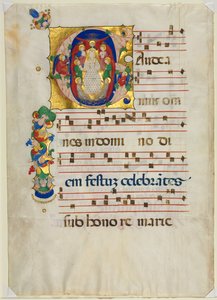 Gaudea
mus om
nes in domi no di
em festuʒ celebrātes
sub hono re marie